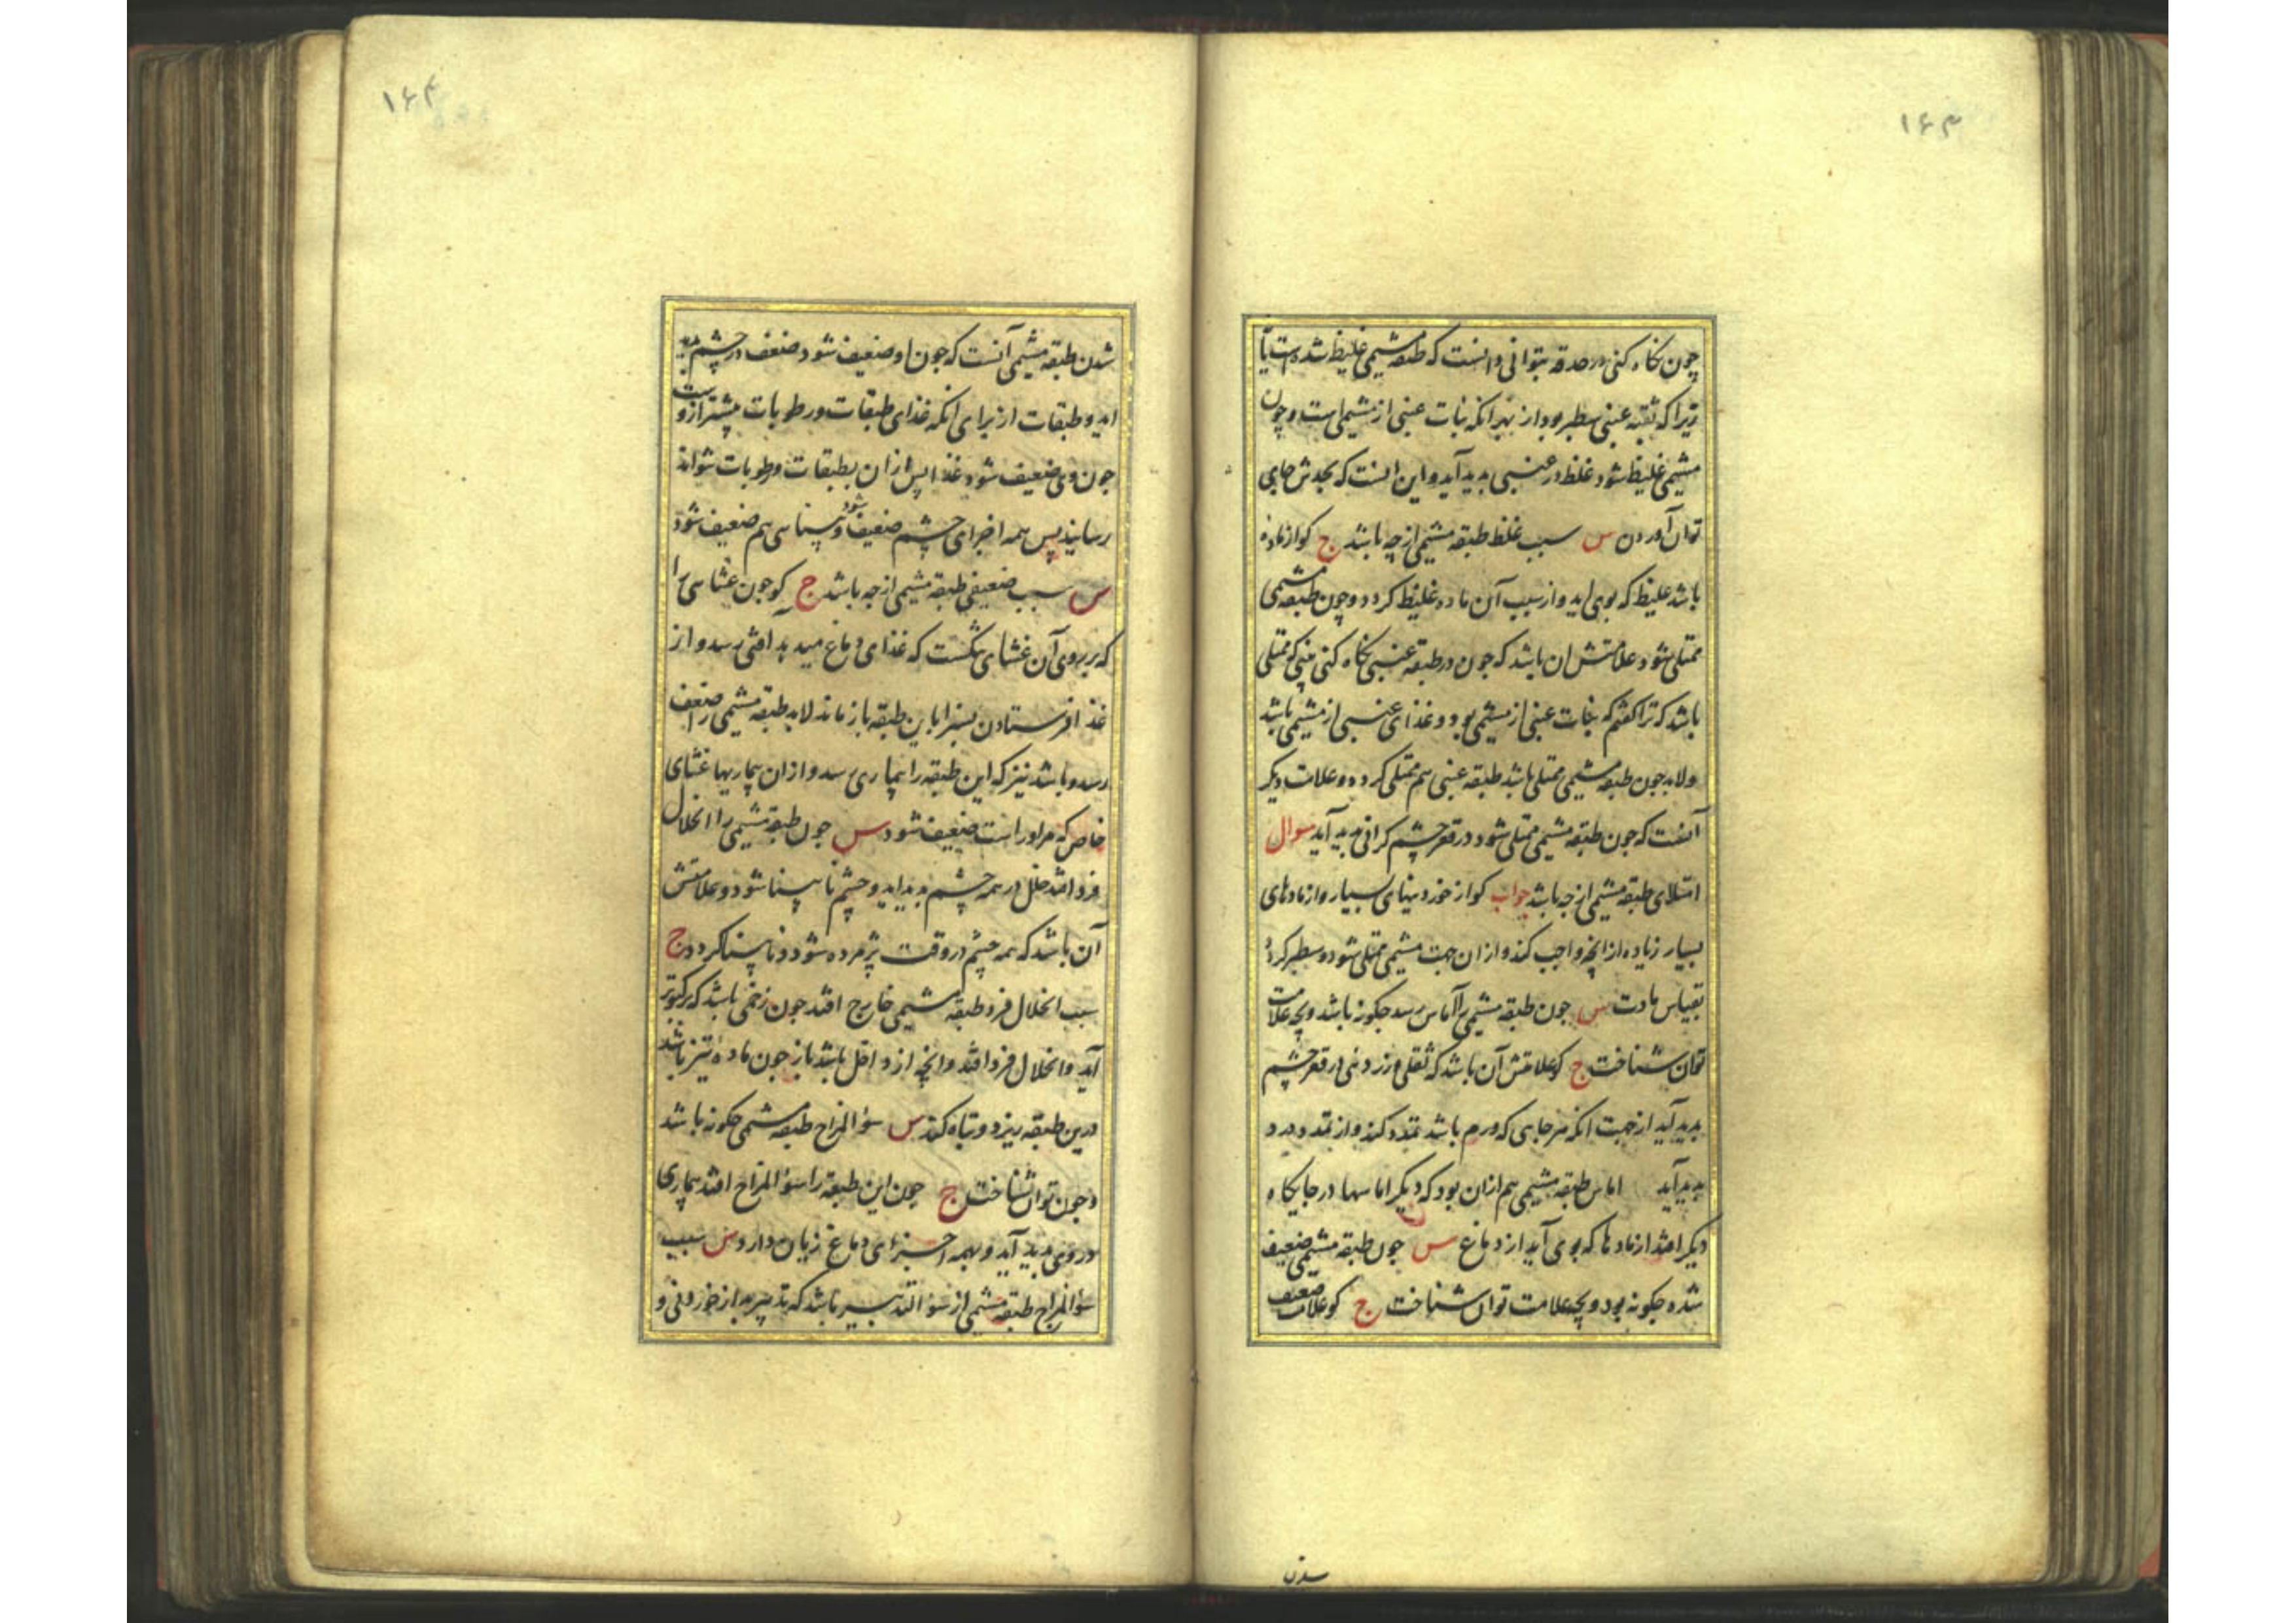 ۱۶۳
چون نکاه کنی در حدقه بتوانی دانست که طبقه مشیمی غلیظ شده است یا
زیرا که ثقبه عنبی سطبر بود از بهر انکه نبات عنبی از مشیمی است و چون
مشیمی غلیظ شود غلظ در عنبی بدید آید و این انست که بحدش جایی
توان آوردن س سبب غلظ طبقه مشیمی از چه باشد ج کو از ماده
باشد غلیظ که بوی اید و از سبب آن ماده غلیظ کردد و چون طبقه مشیمی
ممتلی شود علامتش ان باشد که چون در طبقه عنبی نکاه کنی بینی که ممتلی
باشد که ترا کفتم که نبات عنبی از مشیمی بود و غذای عنبی از مشیمی باشد
ولابد جون طبقه مشیمی ممتلی باشد طبقه عنبی هم ممتلی کردد و علامت دیکر
آنست که جون طبقه مشیمی ممتلی شود در قعر چشم کرانی بدید آید سوال
امتلای طبقه مشیمی از چه باشد جواب کو از خوردنیهای بسیار و از مادهای
بسیار زیاده از انچه واجب کند و از ان جهت مشیمی ممتلی شود و سطبر کردد
بقیاس عادت س جون طبقه مشیمی را آماس رسد جکونه باشد و بچه علامت
توان شناخت ج کو علامتش آن باشد که ثقلی و زردنی در قعر چشم
بدید آید از جهت انکه هر جایی که ورم باشد تمدد کند و از تمدد درد
بدید آید اماس طبقه مشیمی هم ازان بود که دیکر اماسها در جایکاه
دیکر افتد از مادها که بوی آید از دماغ س جون طبقه مشیمی ضعیف
شده جکونه بود و بچه علامت توان شناخت ج کو علامت ضعیف
شدن
۱۶۴
شدن طبقه مشیمی آنست که جون او ضعیف شود ضعف در چشم بدید
اید و طبقات از برای انکه غذای طبقات و رطوبات بیشتر ازوست
جون وی ضعیف شود غذا پس ازان بطبقات و رطوبات نتواند
رسانید پس همه اجزای چشم ضعیف شود و بینایی هم ضعیف شود
س سبب ضعیفی طبقه مشیمی از چه باشد ج کو جون غشایی را
که بر روی آن غشای تنکست که غذای دماغ میدهد آفتی رسد و از
غذا فرستادن بسزا باین طبقه باز ماند لابد طبقه مشیمی را ضعف
رسد و باشد نیز که این طبقه را بیماری رسد و ازان بیماریها غشای
خاص که مر او راست ضعیف شود س جون طبقه مشیمی را انحلال
فرد افتد خلل در همه چشم بدید اید و چشم نابینا شود و علامتش
آن باشد که همه چشم در وقت پژمرده شود و نابینا کردد ج
سبب انحلال فرد طبقه مشیمی خارج افتد جون زخمی باشد که بر کبوتر
آید و انحلال فرد افتد و انچه از داخل باشد باز جون ماده تیز باشد
درین طبقه ریزد و تباه کند س سؤ المزاج طبقه مشیمی جکونه باشد
و جون توان شناخت ج جون این طبقه را سؤ المزاج افتد بیماری
در وی بدید آید و بهمه اجزای دماغ زیان دارد س سبب
سؤ المزاج طبقه مشیمی از سؤ التدبیر باشد که تدبیر بد از خوردنی و